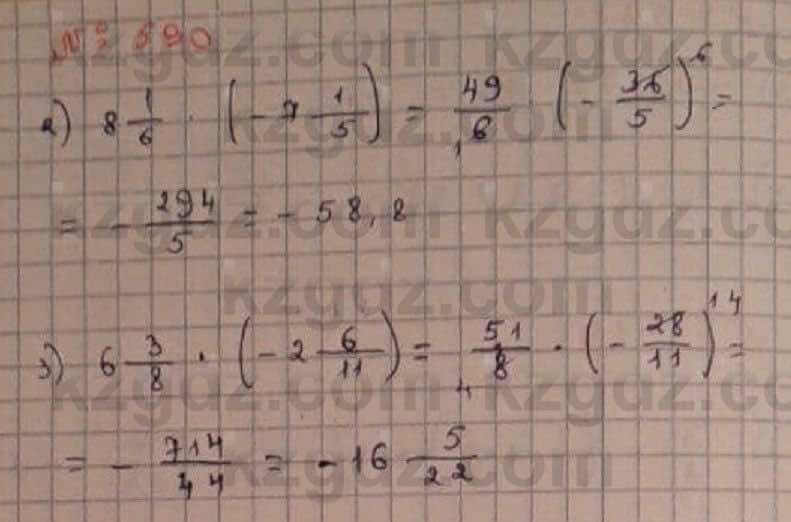 № 590
2) 8 1/6 · (-7 1/5) = 49/6 · (-36/5) 6 =
1
= - 294/5 = - 58,8
3) 6 3/8 · (-2 6/11) = 51/8 · (-28/11) 14 =
4
= - 714/44 = - 16 5/22
kzgdz.com